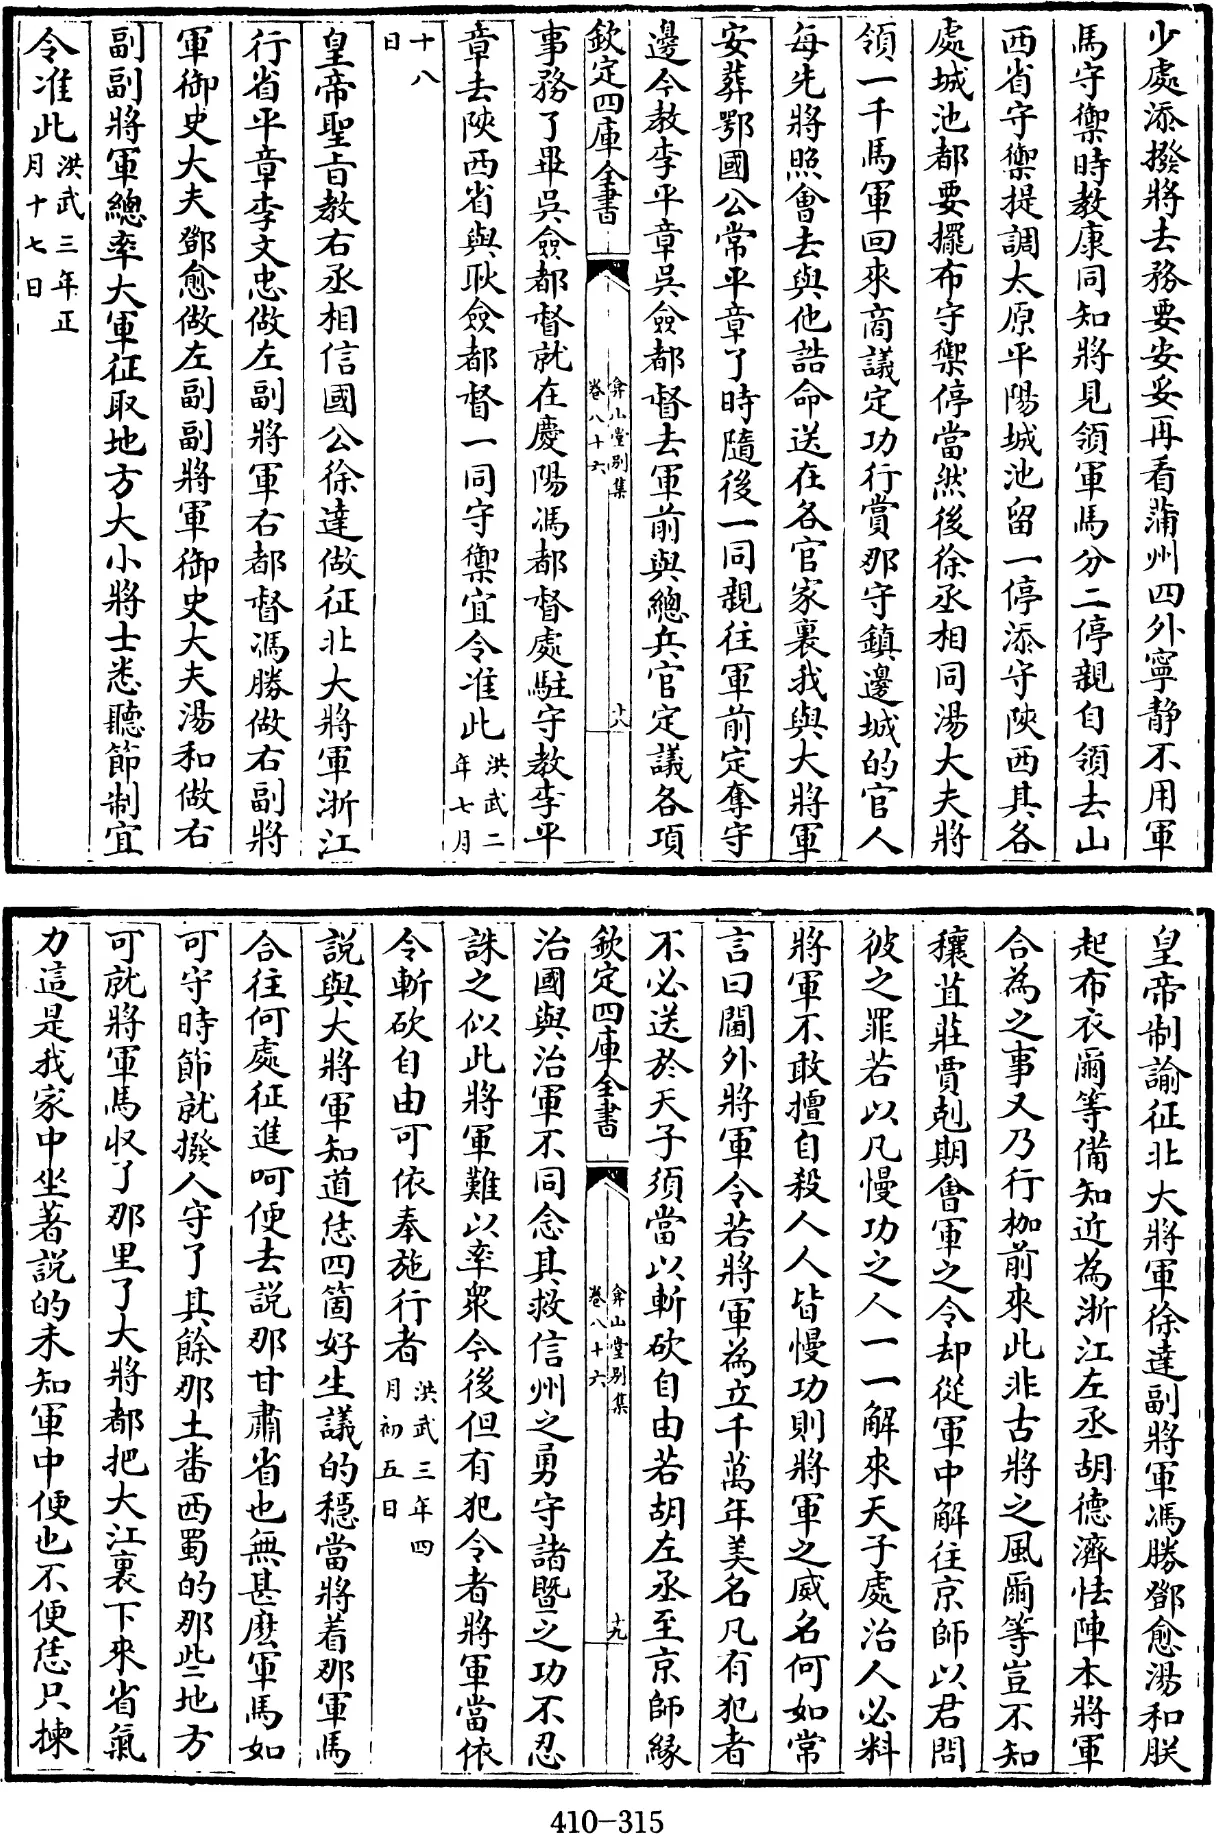 少處添撥將去務要安妥再看蒲州四外寧靜不用軍
馬守禦時教康同知將見領軍馬分二停親自領去山
西省守禦提調太原平陽城池留一停添守陜西其各
處城池都要擺布守禦停當然後徐丞相同湯大夫將
領一千馬軍回來商議定功行賞那守鎮邊城的官人
每先將照會去與他誥命送在各官家裏我與大將軍
安葬鄂國公常平章了時隨後一同親往軍前定奪守
邊今教李平章吳僉都督去軍前與總兵官定議各項
欽定四庫全書
弇山堂別集
卷八十六
十八
事務了畢吳僉都督就在慶陽馮都督處駐守教李平
章去陜西省與耿僉都督一同守禦宜令准此洪武二
年七月
十八
日
皇帝聖旨教右丞相信國公徐達做征北大將軍浙江
行省平章李文忠做左副將軍右都督馮勝做右副將
軍御史大夫鄧愈做左副副將軍御史大夫湯和做右
副副將軍總率大軍征取地方大小將士悉聽節制宜
令准此洪武三年正
月十七日
皇帝制諭征北大將軍徐達副將軍馮勝鄧愈湯和朕
起布衣爾等備知近為浙江左丞胡德濟怯陣本將軍
合為之事又乃行枷前來此非古將之風爾等豈不知
穰苴莊賈剋期會軍之令却從軍中解往京師以君問
彼之罪若以凡慢功之人一一解來天子處治人必料
將軍不敢擅自殺人人皆慢功則將軍之威名何如常
言曰閫外將軍令若將軍為立千萬年美名凡有犯者
不必送於天子須當以斬砍自由若胡左丞至京師緣
欽定四庫全書
弇山堂別集
卷八十六
十九
治國與治軍不同念其救信州之勇守諸暨之功不忍
誅之似此將軍難以率衆今後但有犯令者將軍當依
令斬砍自由可依奉施行者洪武三年四
月初五日
說與大將軍知道恁四箇好生議的穩當將着那軍馬
合往何處征進呵便去說那甘肅省也無甚麽軍馬如
可守時節就撥人守了其餘那土番西蜀的那些地方
可就將軍馬收了那里了大將都把大江裏下來省氣
力這是我家中坐著說的未知軍中便也不便恁只揀
410-315